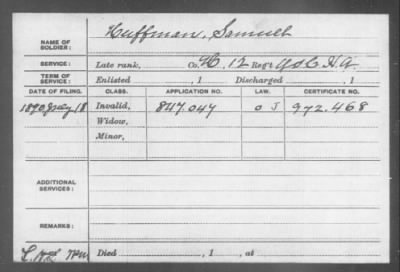 NAME OF SOLDIER: Huffman, Samuel
SERVICE: Late rank, Co. H, 12 Reg't U.S.C.H.A.
TERM OF SERVICE: Enlisted , 1 Discharged , 1
DATE OF FILING. CLASS. APPLICATION NO. LAW. CERTIFICATE NO.
1890 July 18 Invalid, 847.047 O J 972.468
Widow,
Minor,
ADDITIONAL SERVICES:
REMARKS:
Died , 1 , at